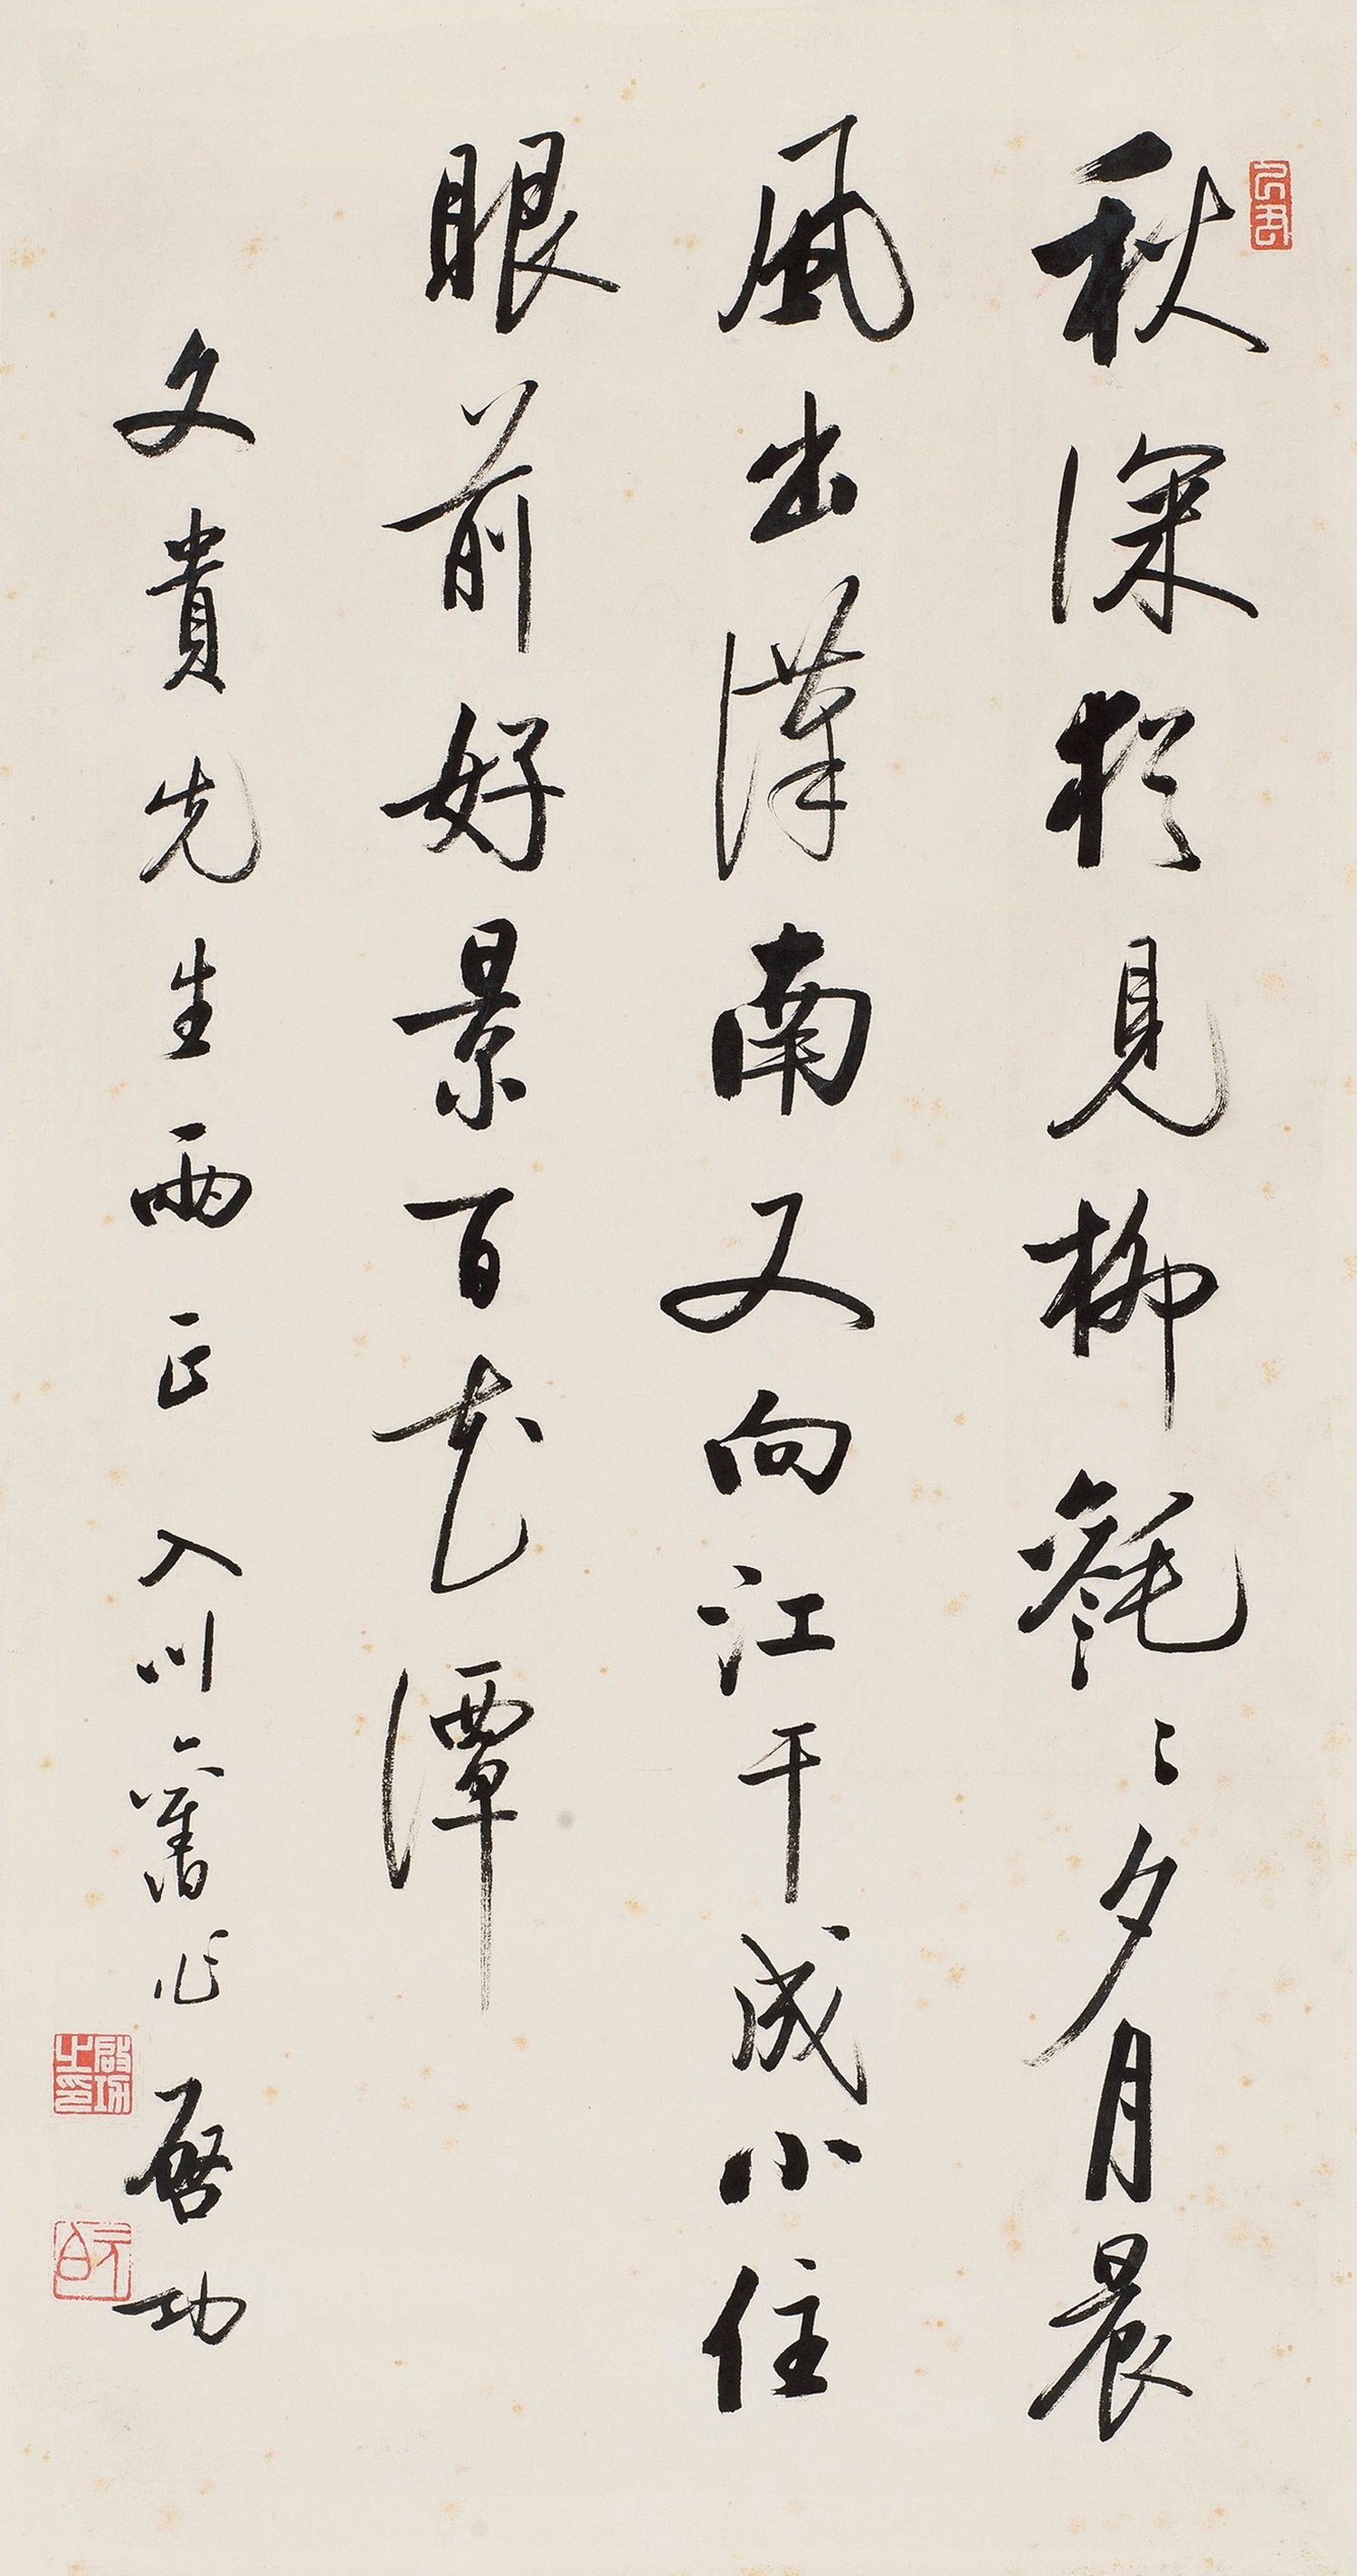 秋深於見柳毿〻夕月晨
風出漢南又向江干成小住
眼前好景百花潭
文貴先生兩正 入川舊作 啓功
啓功之印
元白